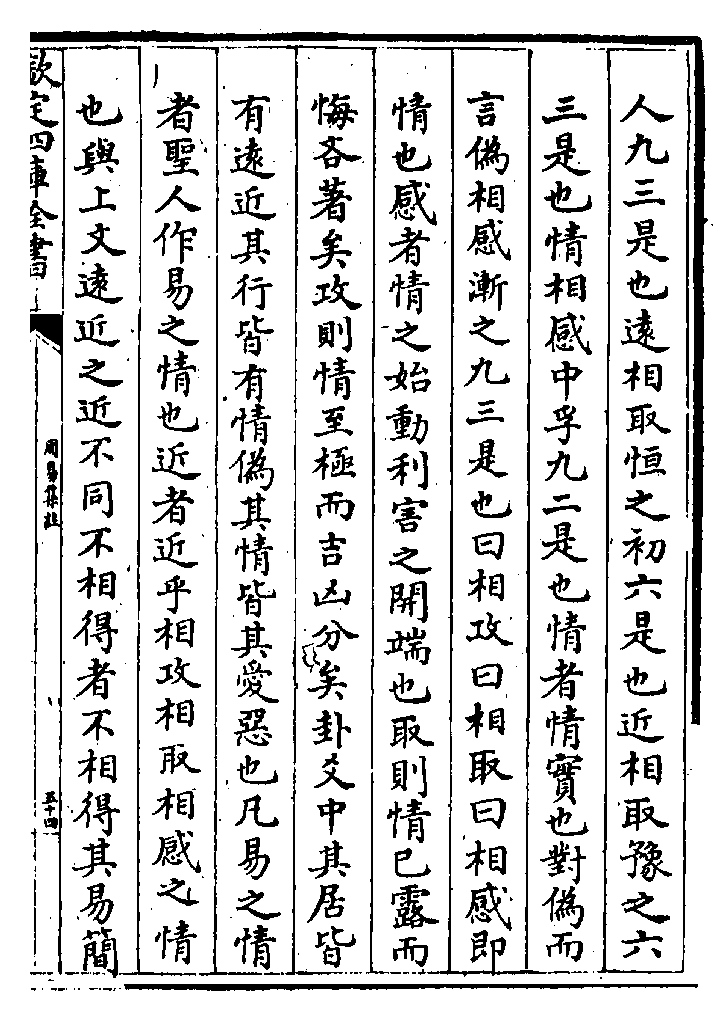 人九三是也遠相取恒之初六是也近相取豫之六
三是也情相感中孚九二是也情者情實也對偽而
言偽相感漸之九三是也曰相攻曰相取曰相感即
情也感者情之始動利害之開端也取則情已露而
悔吝著矣攻則情至極而吉凶分矣卦爻中其居皆
有遠近其行皆有情偽其情皆其愛惡也凡易之情
者聖人作易之情也近者近乎相攻相取相感之情
也與上文遠近之近不同不相得者不相得其易簡
欽定四庫全書
周易集註
五十四